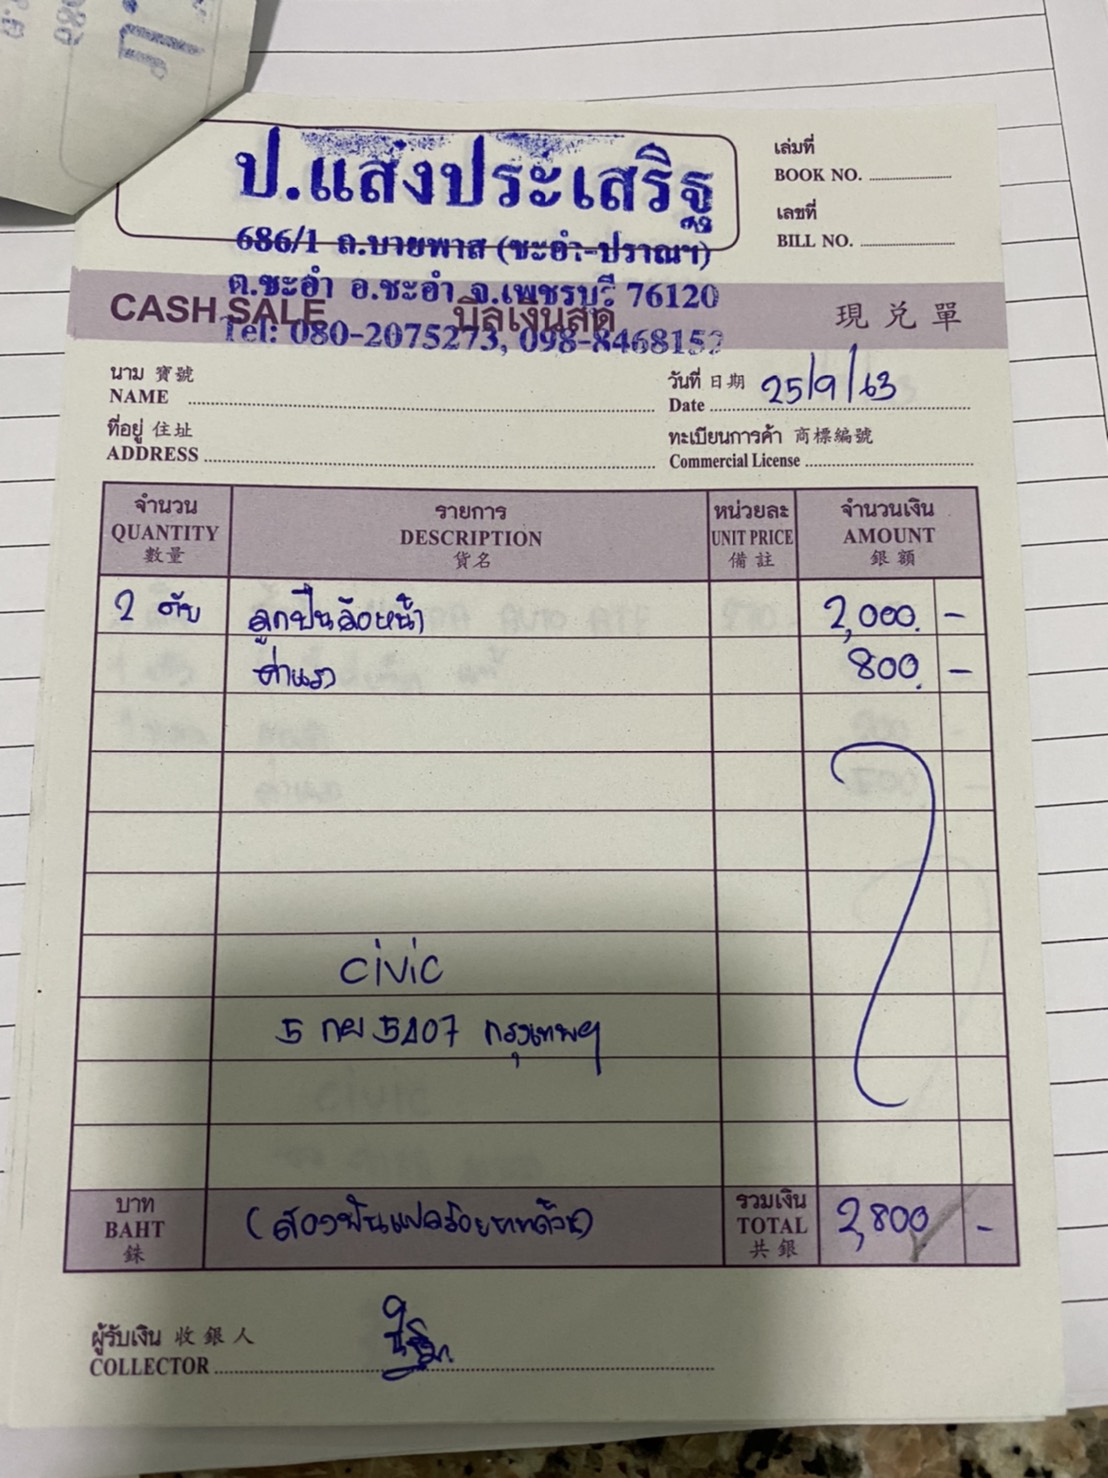 ป.แสงประเสริฐ
686/1 ถ.บายพาส (ชะอำ-ปราณฯ)
ต.ชะอำ อ.ชะอำ จ.เพชรบุรี 76120
Tel: 080-2075273, 098-8468152
เล่มที่
BOOK NO.
เลขที่
BILL NO.
CASH SALE บิลเงินสด 現兑單
นาม 寶號
NAME
วันที่ 日期 25/9/63
Date
ที่อยู่ 住址
ADDRESS
ทะเบียนการค้า 商標編號
Commercial License
จำนวน รายการ หน่วยละ จำนวนเงิน
QUANTITY DESCRIPTION UNIT PRICE AMOUNT
數量 貨名 備註 銀額
2 ตับ ลูกปืนล้อหน้า 2,000 -
ค่าแรง 800 -
civic
5 กผ 5407 กรุงเทพฯ
บาท (สองพันแปดร้อยบาทถ้วน) รวมเงิน 2,800 -
BAHT TOTAL
銖 共銀
ผู้รับเงิน 收銀人
COLLECTOR